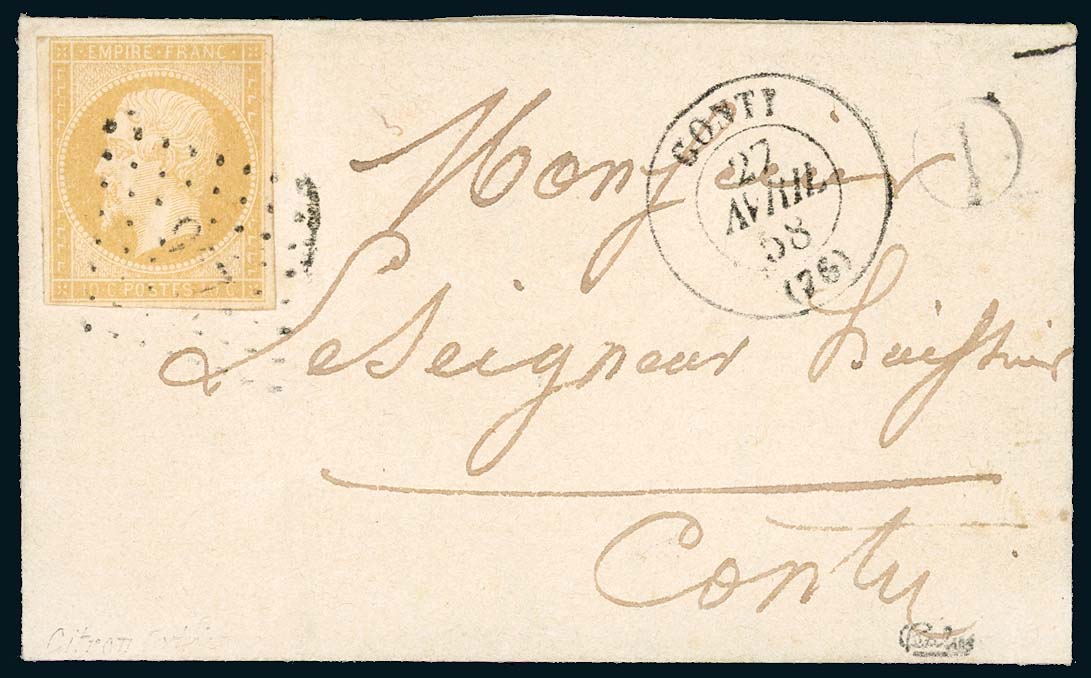 EMPIRE FRANC
10 C POSTES 10 C
CONTY
27
AVRIL
58
(76)
D
Monsieur
Leseigneur huissier
Conty
Citron